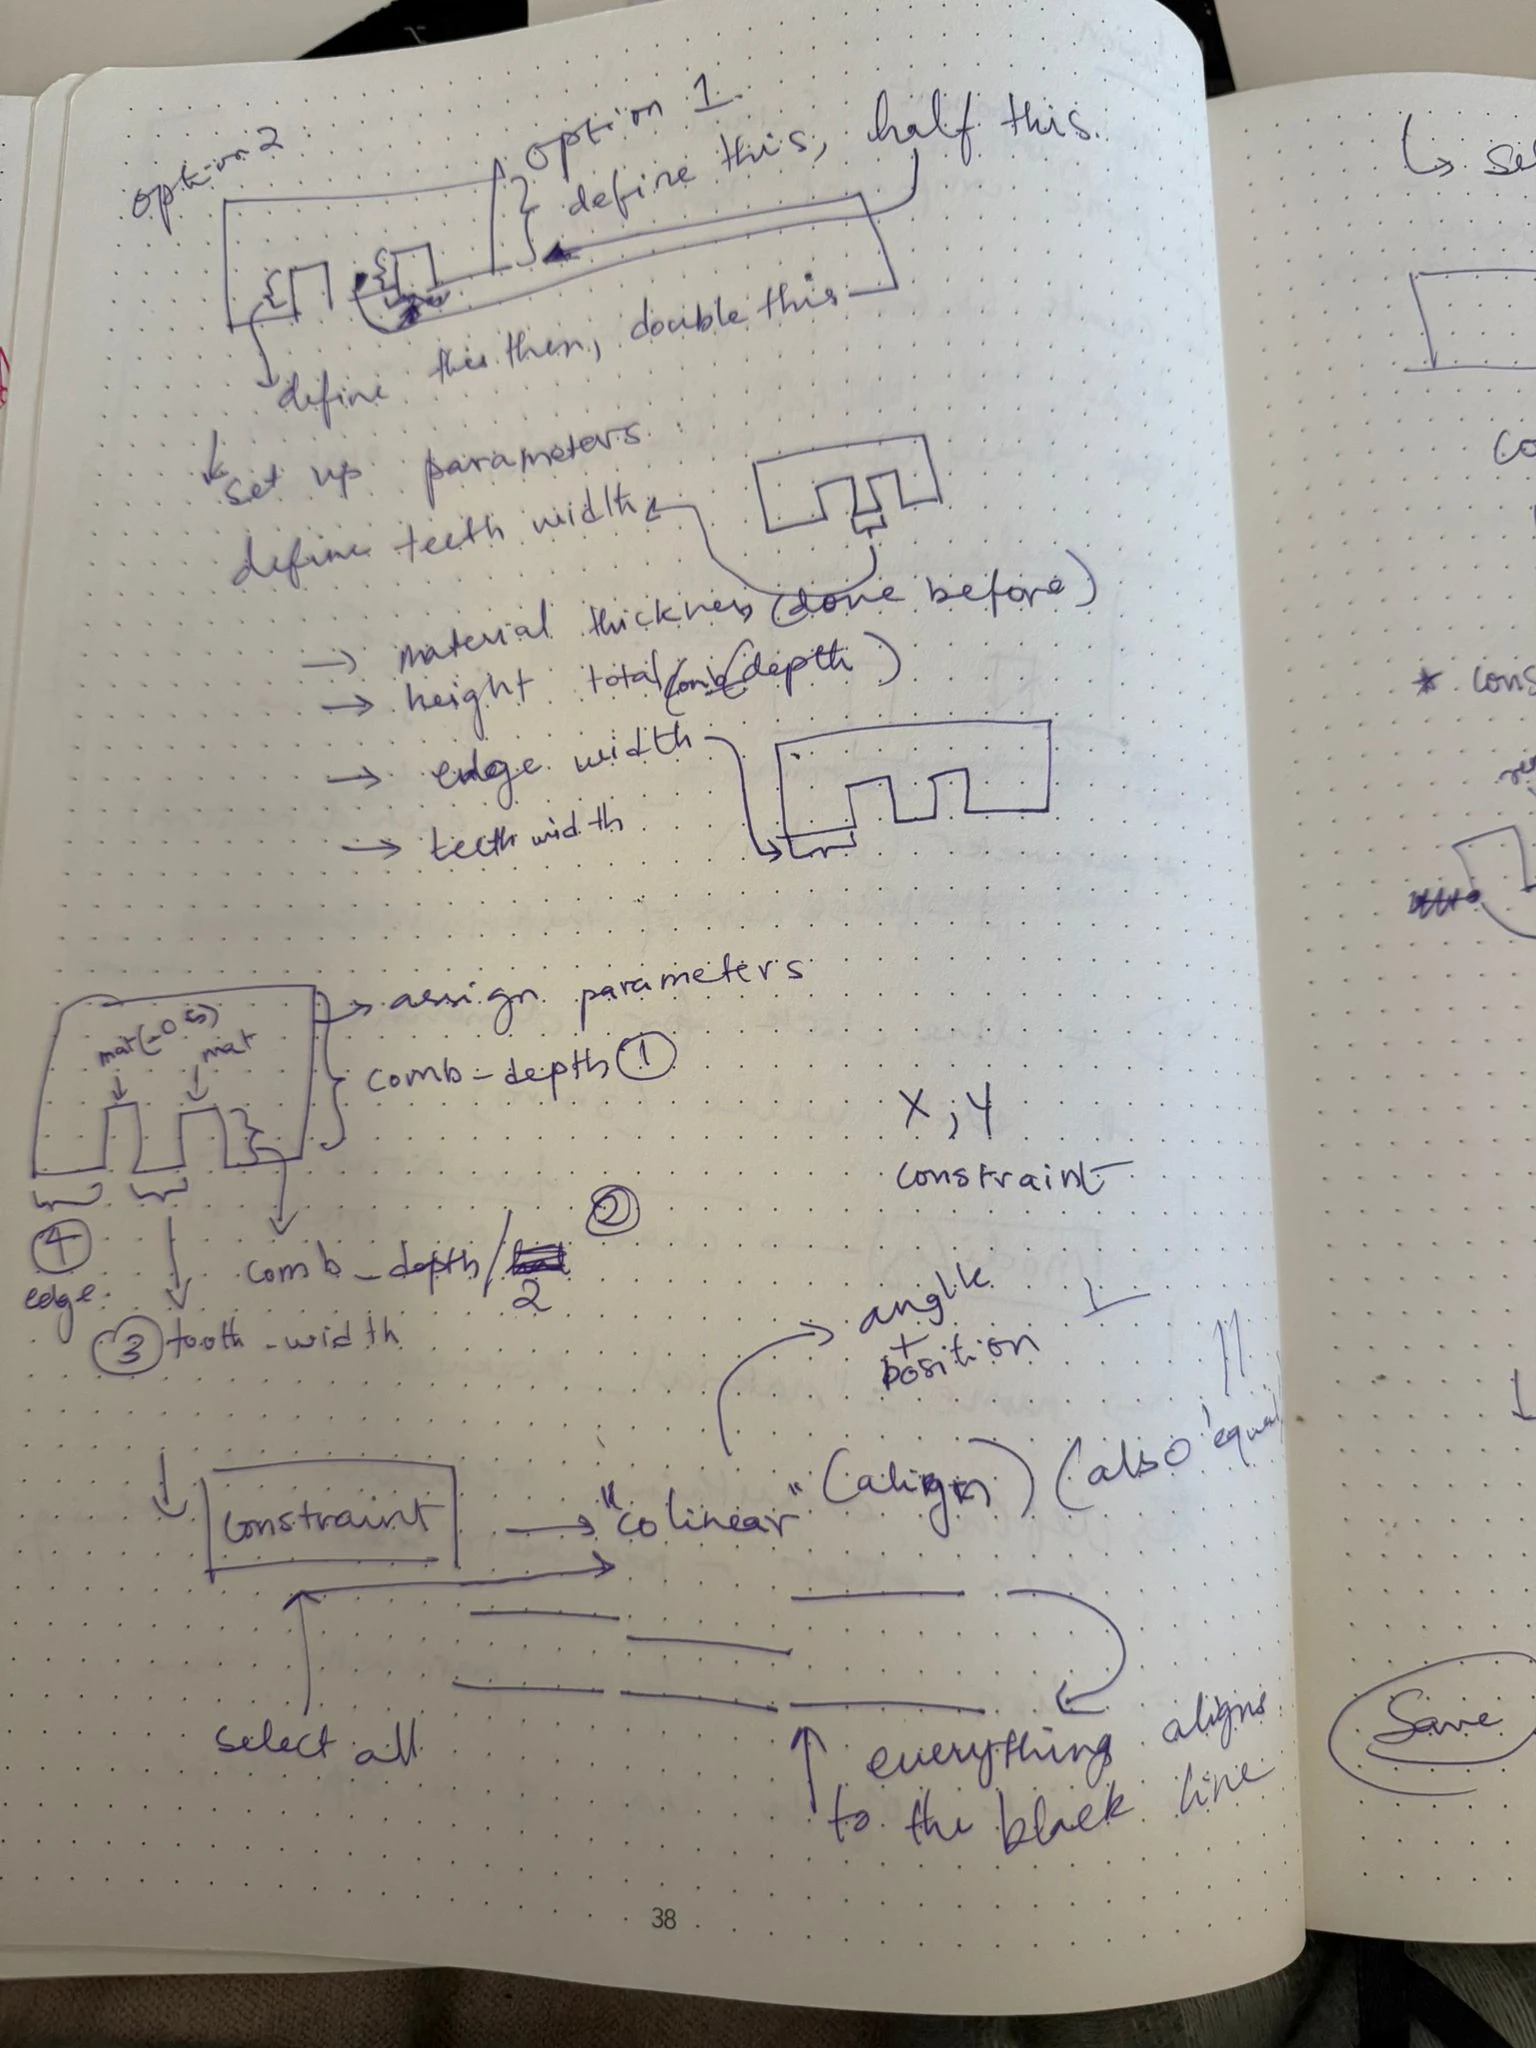 option 2
option 1
define this, half this.
define this then, double this
set up parameters
define teeth width
→ material thickness (done before)
→ height total (comb depth)
→ edge width
→ teeth width
→ assign parameters
mat(-0.5)
mat
comb-depth ①
X, Y
constraint
②
comb-depth/
2
④
edge
③ tooth-width
angle
+
position
constraint → "colinear" (align) (also 'equal
select all
everything aligns
to the black line
38
↳ se
co
* cons
Save